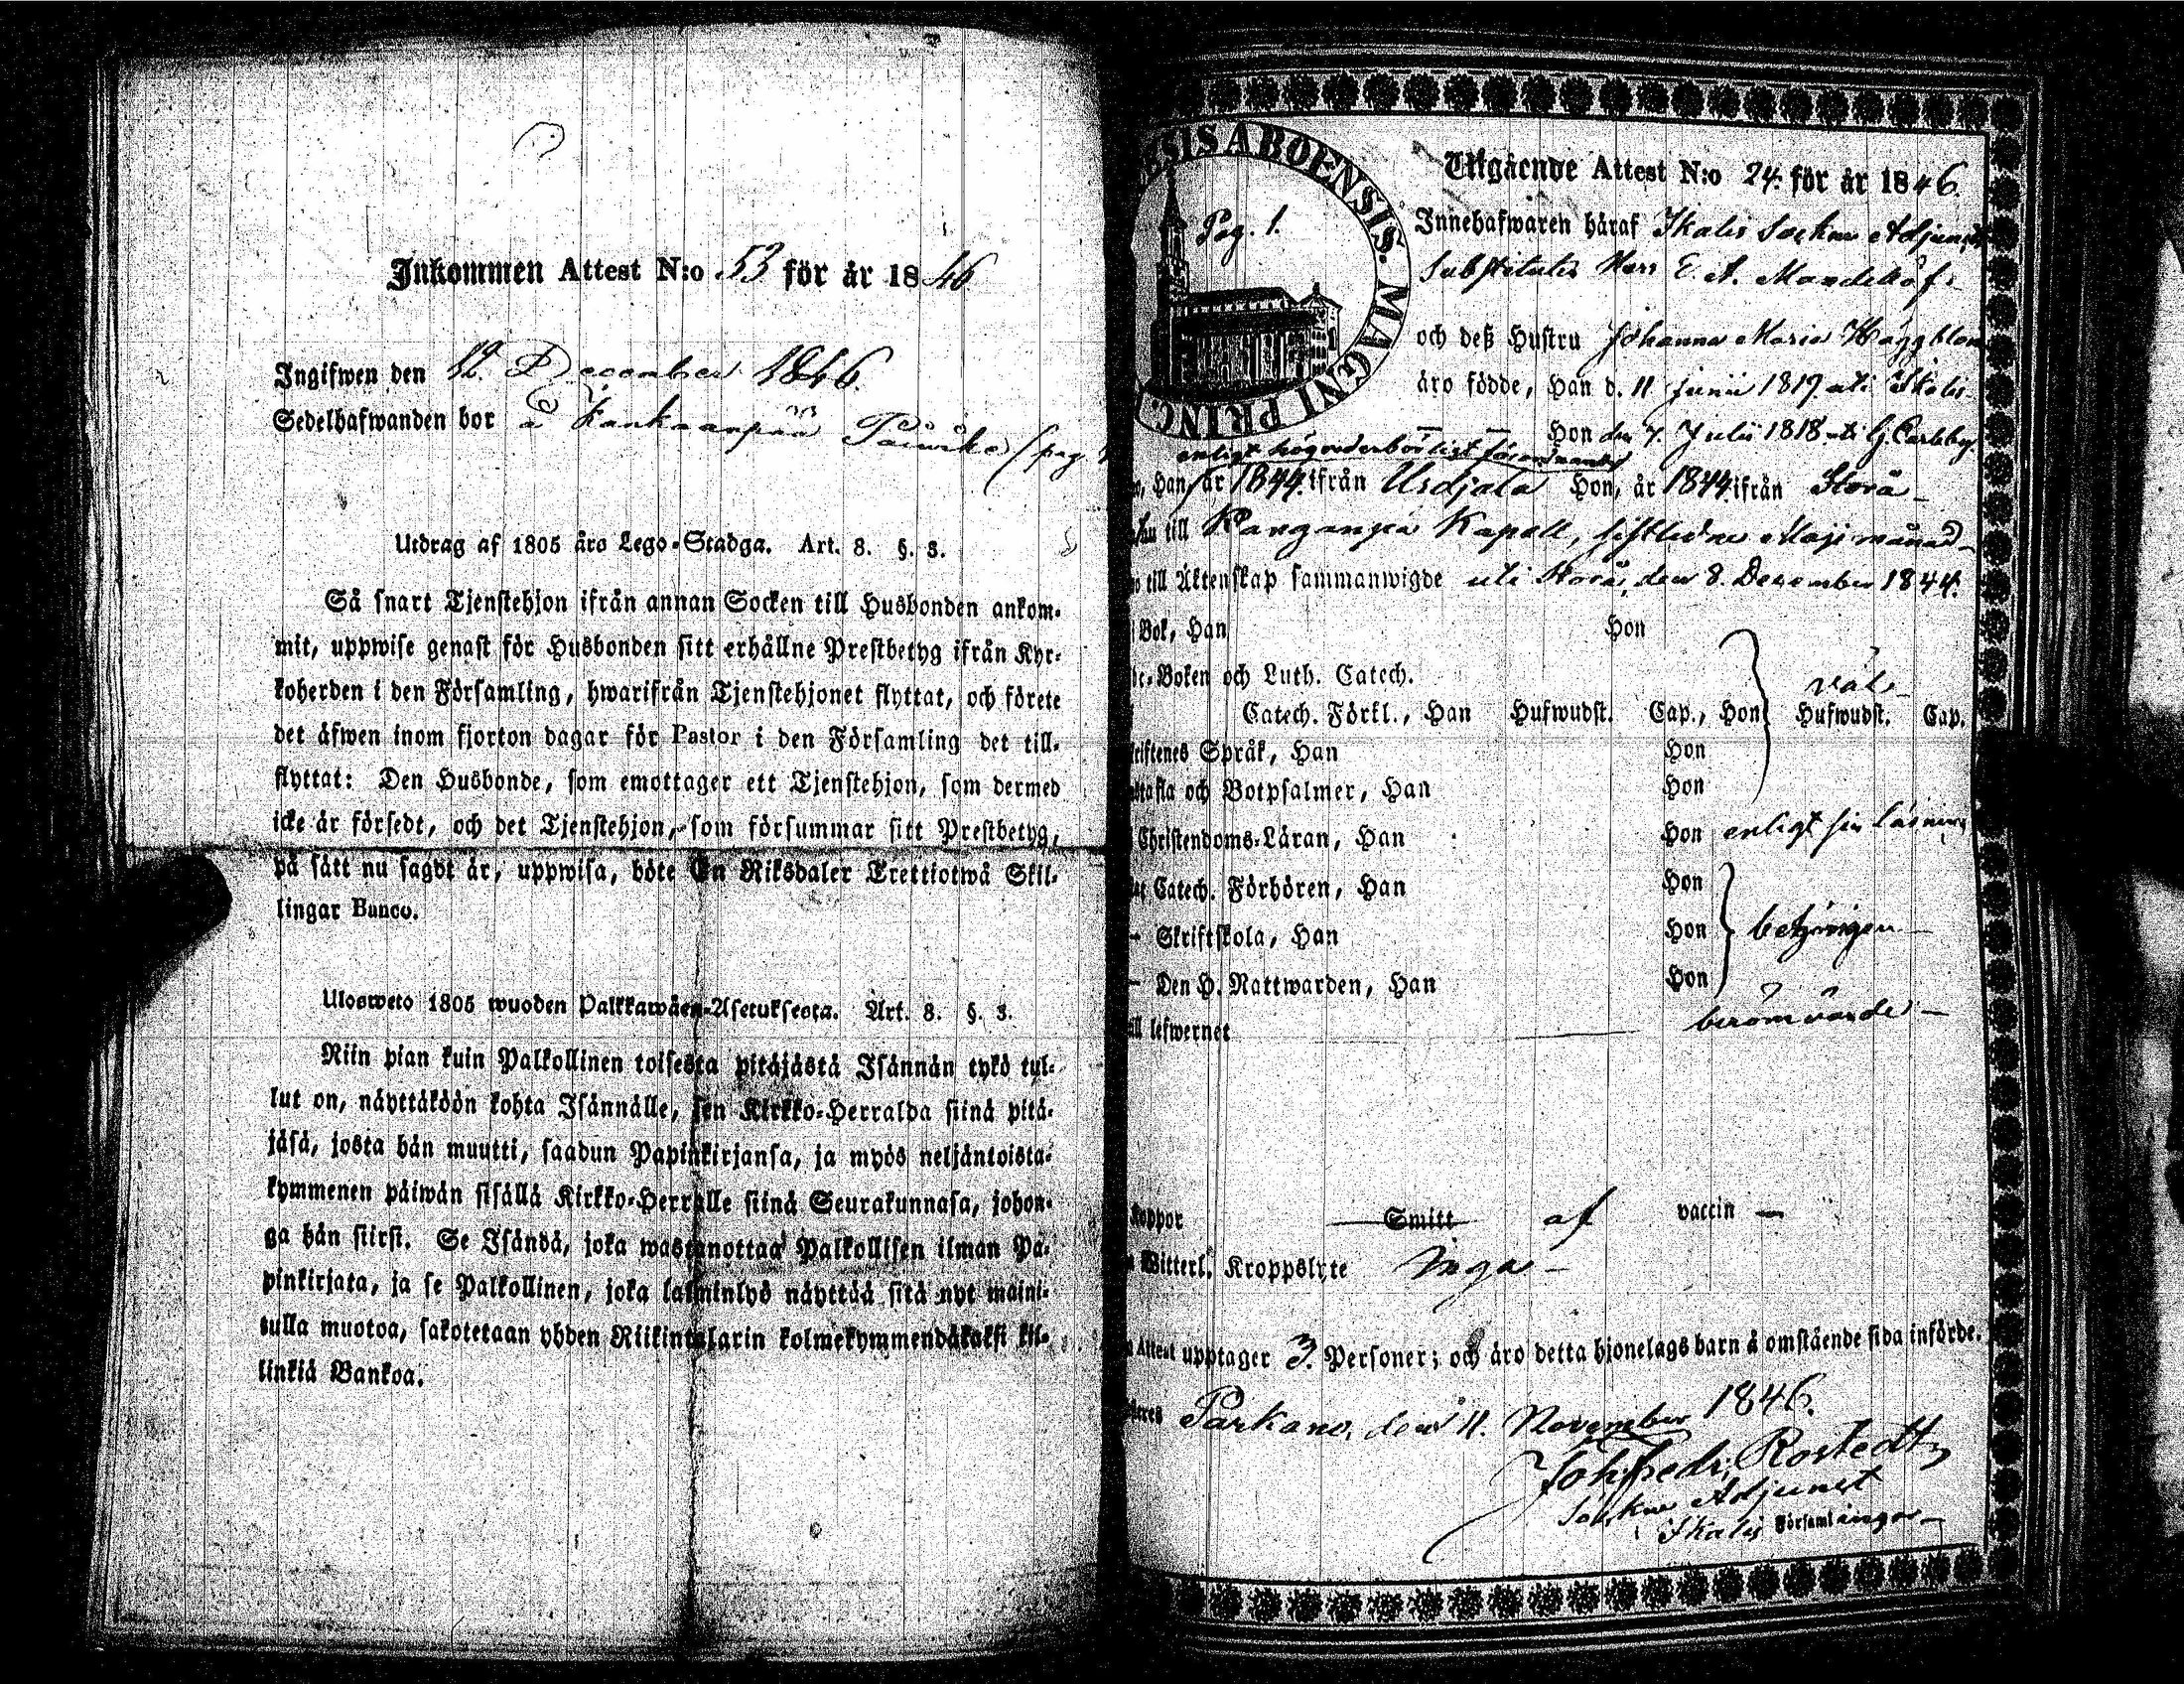 Inkommen Attest N:o 53 för år 1846
Ingifwen den 12. December 1846.
Sedelhafwanden bor å Kankaanpää (pag.
Utdrag af 1805 års Lego-Stadga. Art. 8. §. 3.
Så snart Tjenstehjon ifrån annan Socken till Husbonden ankom-
mit, uppwise genast för Husbonden sitt erhållne Prestbetyg ifrån Kyr-
koherden i den Församling, hwarifrån Tjenstehjonet flyttat, och förete
det äfwen inom fjorton dagar för Pastor i den Församling det till-
flyttat: Den Husbonde, som emottager ett Tjenstehjon, som dermed
icke är försedt, och det Tjenstehjon, som försummar sitt Prestbetyg,
på sätt nu sagdt är, uppwisa, böte En Riksdaler Trettiotwå Skil-
lingar Banco.
Ulosweto 1805 wuoden Palkkawäen-Asetuksesta. Art. 8. §. 3.
Niin pian kuin Palkollinen toisesta pitäjästä Isännän tykö tul-
lut on, näyttäköön kohta Isännälle, sen Kirkko-Herralda siinä pitä-
jäsä, josta hän muutti, saadun Papinkirjansa, ja myös neljäntoista-
kymmenen päiwän sisällä Kirkko-Herralle siinä Seurakunnasa, johon-
ga hän siirsi. Se Isändä, joka wastanottaa Palkollisen ilman Pa-
pinkirjata, ja se Palkollinen, joka laiminlyö näyttää sitä nyt maini-
tulla muotoa, sakotetaan yhden Riikintalarin kolmekymmendäkaksi kil-
linkiä Bankoa.
SIS ABOENSIS. MAGNI PRINC.
Pag. 1.
Utgående Attest N:o 24. för år 1846.
Innehafwaren häraf Ikalis Sockne Adjuncts
Substituten Herr E. A. Mandellöf
och deß Hustru Johanna Maria Häggblom
äro födde, Han d. 11 Junii 1819. uti Ikalis
Hon den 7. Julii 1818 uti G. Carleby
enligt högvederbörligt förordnande
Han, år 1844. ifrån Urdjala Hon, år 1844 ifrån Storå
till Kangaspä Kapell, sistledne Maji månad
till Äktenskap sammanwigde uti Storå, den 8. December 1844.
Bok, Han Hon
Boken och Luth. Catech. väl
Catech. Förkl., Han Hufwudst. Cap., Hon Hufwudst. Cap.
Språk, Han Hon
och Botpsalmer, Han Hon
Christendoms-Läran, Han Hon enligt sin läsning
Catech. Förhören, Han Hon
Skriftskola, Han Hon behörigen
Den H. Nattwarden, Han Hon
lefwernet berömvärde
koppor Smitt af vaccin
Witterl. Kroppslyte inga
Attest upptager 3. Personer; och äro detta hjonelags barn å omstående sida införde.
Parkano, den 11. November 1846.
Joh. Fredr. Rostedt,
Sockne Adjunct
i Ikalis Församlingar